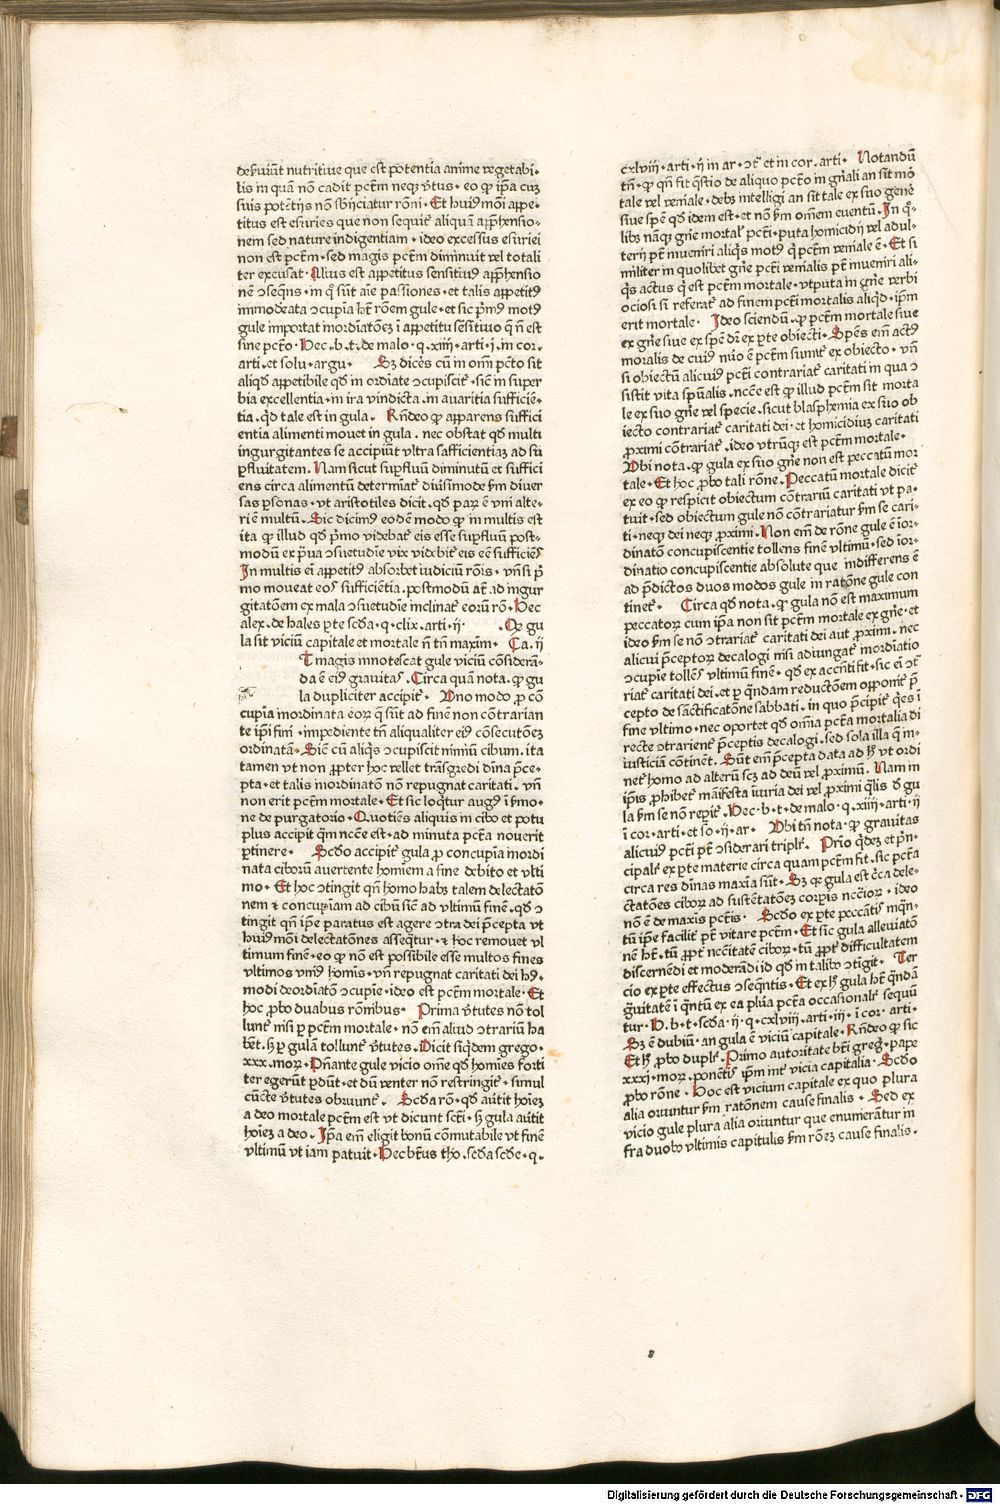 deẜuiūt nutritiue que est potentia anime vegetabi⸗
lis in quā nō cadit pctm̄ neqꝫ v̄tus · eo ꝙ ip̄a cuꝫ
suis potētijs nō sb̄ijciatur rōni · Et huiꝰmōi appe⸗
titus est esuries que non sequit᷑ aliquā app̄hensio⸗
nem sed nature indigentiam · ideo excessus esuriei
non est pctm̄ · sed magis pctm̄ diminuit vel totali
ter excusat · Alius est appetitus sensitiuꝰ app̄hensio
nē ↄseqn̄s · in q̊ sūt aīe passiones · et talis appetitꝰ
immod̓ata ↄcupīa hꝫ rōem gule · et sic pͥmꝰ motꝰ
gule importat inordīatōeꝫ ī appetitu sēsitiuo q̄ n̄ est
sine pctō · Hec · b · t · de malo · q · xiiij · arti · j · in cor ·
arti · et solu · argu · Sꝫ dicēs cū in om̄i pctō sit
aliqđ appetibile qđ in ordīate ↄcupiscit᷑ · sic̄ in super
bia excellentia · in ira vindicta · in auaritia sufficiē⸗
tia · qđ tale est in gula · Rn̄deo ꝙ apparens suffici
entia alimenti mouet in gula · nec obstat qđ multi
ingurgitantes se accipiūt vltra safficientiaꝫ ad su
ꝑfluitatem · Nam sicut suꝑfluū diminutū et suffici
ens circa alimentū determīat᷑ diuͥsimode ẜm diuer
sas ꝑsonas · vt aristotiles dicit · qđ paꝝ ē vni alte⸗
ri ē multū · Sic dicimꝰ eodē modo ꝙ in multis est
ita ꝙ illud qđ pͥmo videbat᷑ eis esse suꝑfluū post⸗
modū ex pͥua ↄsuetudīe vix videbit᷑ eis eē sufficiēs
In multis ei̅ appetitꝰ absorbet iudiciū rōis · vn̄ si pͥ
mo moueat eoꝝ sufficiētia · postmodū at̄ ad ingur
gitatōem ex mala ↄsuetudīe inclinat᷑ eorū rō · Hec
alex · de hales ꝑte scđa · q · clix · arti · ij · Qꝫ gu
la sit viciū capitale et mortale n̄ tn̄ maxim̄ · Ca · ij
T magis innotescat gule viciū cōsiderā⸗
da ē eiꝰ grauitas · Circa quā nota · ꝙ gu
la dupliciter accipit᷑ · Uno modo ꝓ cō
cupīa inordinata eoꝝ q̄ sūt ad finē non cōtrarian
te ip̄i fini · impediente tn̄ aliqualiter eiꝰ cōsecutōeꝫ
ordinatā · Sic̄ cū aliqͥs ↄcupiscit nimiū cibum · ita
tamen vt non ꝓpter hoc vellet trāsgredi diuīa p̄ce⸗
pta · et talis inordinatō nō repugnat caritati · vn̄
non erit pctm̄ mortale · Et sic loqͥtur augꝰ ī ẜmo⸗
ne de purgatorio · Quotiēs aliquis in cibo et potu
plus accipit qͣm ncc̄e est · ad minuta pctā nouerit
ꝑtinere · Scđo accipit᷑ gula ꝓ concupīa inordi
nata ciborū auertente homīem a fine debito et vlti
mo · Et hoc ↄtingit qn̄ homo habꝫ talem delectatō
nem ⁊ concupīam ad cibū sic̄ ad vltimū finē · qđ ↄ
tingit qn̄ ip̄e paratus est agere ↄtra dei p̄cepta vt
huiꝰmōi delectatōnes asseqͣtur · ⁊ hoc remouet vl
timum finē · eo ꝙ nō est possibile esse multos fines
vltimos vniꝰ homīs · vn̄ repugnat caritati dei hꝰ⸗
modi deordīatō ↄcupīe · ideo est pctm̄ mortale · Et
hoc ꝓbo duabus rōnibus · Prima v̓tutes nō tol
lunt᷑ nisi ꝑ pctm̄ mortale · nō em̄ aliud ↄtrariū ha
bēt · ꝫ ꝑ gulā tollunt᷑ v̓tutes · Dicit siqͥdem grego ·
xxx · moꝝ · Pn̄ante gule vicio om̄e qđ homīes forti
ter egerūt ꝑdūt · et dū venter nō restringit᷑ · simul
cūcte v̓tutes obruunt᷑ · Scđa rō · qđ au̓tit hoīeꝫ
a deo mortale pctm̄ est vt dicunt sctī · ꝫ gula au̓tit
hoīeꝫ a deo · Ip̄a em̄ eligit bonū cōmutabile vt finē
vltimū vt iam patuit · Hec btūs tho · scđa scđe · q ·
cxlviij · arti · ij in ar · ↄ᷑t et in cor · arti · Notandū
tn̄ · ꝙ qn̄ fit q̄stio de aliquo pctō in gn̄ali an sit mo̓
tale vel veniale · debꝫ intelligi an sit tale ex suo gene̓
siue spē qđ idem est · et nō ẜm om̄em euentū · In q̊⸗
libꝫ nāqꝫ gn̄e mortal᷑ pctī · puta homicidij vel adul⸗
terij pt̄ inueniri aliqͥs motꝰ qͥ pctm̄ veniale ē · Et si
mͥliter in quolibet gn̄e pctī venialis pt̄ inueniri ali⸗
qͥs actus qͥ est pctm̄ mortale · vtputa in gn̄e verbi
ociosi si referat᷑ ad finem pctī mortalis aliqđ · ip̄m
erit mortale · Ideo sciendū · ꝙ pctm̄ mortale siue
ex gn̄e siue ex spē dr̄ ex ꝑte obiecti · Spēs em̄ actꝰ
moralis de cuiꝰ nūo ē pctm̄ sumit᷑ ex obiecto · vn̄
si obiectū alicuiꝰ pctī contrariat᷑ caritati in qua ↄ
sistit vita spūalis · ncc̄e est ꝙ illud pctm̄ sit morta
le ex suo gn̄e vel specie · sicut blasphemia ex suo ob
iecto contrariat᷑ caritati dei · et homicidiuꝫ caritati
ꝓximi cōtrariat᷑ · ideo vtrūqꝫ est pctm̄ mortale ·
Ubi nota · ꝙ gula ex suo gn̄e non est peccatū mor
tale · Et hoc ꝓbo tali rōne · Peccatū mortale dicit᷑
ex eo ꝙ respicit obiectum cōtrariū caritati vt pa⸗
tuit · sed obiectum gule nō cōtrariatur ẜm se cari⸗
ti · neqꝫ dei neqꝫ ꝓximi · Non em̄ de rōne gule ē īor⸗
dinatō concupiscentie tollens finē vltimū · sed īor⸗
dinatio concupiscentie absolute que indifferens ē
ad p̄dictos duos modos gule in ratōne gule con
tinet᷑ · Circa qđ nota · ꝙ gula nō est maximum
peccatoꝝ cum ip̄a non sit pctm̄ mortale ex gn̄e · et
ideo ẜm se nō ↄtrariat᷑ caritati dei aut ꝓximi · nec
alicui p̄ceptoꝝ decalogi nisi adiungat᷑ inordīatio
ↄcupīe tollēs vltimū finē · qđ ex accn̄ti fit · sic ei̅ ↄ᷑t
riat᷑ caritati dei · et ꝑ qͣndam reductōem opponit᷑ p̄
cepto de sāctificatōne sabbati · in quo p̄cipit᷑ qͥes ī
fine vltimo · nec oportet qđ om̄ia pctā mortalia di
recte ↄtrarient᷑ p̄ceptis decalogi · sed sola illa q̄ in⸗
iusticiā cōtinēt · Sūt em̄ p̄cepta data ad hͦ vt ordi
net᷑ homo ad alterū scꝫ ad deū vel ꝓximū · Nam in
ip̄is ꝓhibet᷑ māifesta iniuria dei vel ꝓximi qͣlis d̓ gu
la ẜm se nō reꝑit᷑ · Hec · b · t · de malo · q · xiiij · arti · ij
ī cor · arti · et so̅ · ij · ar · Ubi tn̄ nota · ꝙ grauitas
alicuiꝰ pctī pt̄ ↄsiderari triplr̄ · Prīo qͥdeꝫ et pͥn⸗
cipalr̄ ex ꝑte materie circa quam pctm̄ fit · sic pctā
circa res diuīnas maxīa sūt · Sꝫ ꝙ gula est cͥca dele⸗
ctatōes ciboꝝ ad sustētatōeꝫ corꝑis nccīoꝝ · ideo
nō ē de maxīs pctīs · Scđo ex ꝑte peccātis inqͣn⸗
tū ip̄e facilit᷑ pt̄ vitare pctm̄ · Et sic gula alleuiatō
nē hꝫ · tū ꝓpt᷑ ncc̄itatē ciboꝝ · tū ꝓpt᷑ difficultatem
discernēdi et moderādi id qđ in talibꝫ ↄtigit · Ter
cio ex ꝑte effectus ↄseqn̄tis · Et ex hͦ gula hꝫ qͣndā
gͣuitatē ī qͣntū ex ea plīa pctā occasionalr̄ sequū
tur · b · b · t · scđa · ij · q · cxlviij · arti · iij · ī cor · arti ·
Sꝫ ē dubiū · an gula ē viciū capitale · Rn̄deo ꝙ sic
Et hͦ ꝓbo duplr̄ · Primo autoritate btī greg̓ · pape
xxxi · moꝝ · ponētis ip̄m int᷑ vicia capitalia · Scđo
ꝓbo rōne · Hoc est vicium capitale ex quo plura
alia oriuntur ẜm ratōnem cause finalis · Sed ex
vicio gule plura alia oriuntur que enumerātur in
fra duobꝰ vltimis capitulis ẜm rōeꝫ cause finalis ·
Digitalisierung gefördert durch die Deutsche Forschungsgemeinschaft - DFG